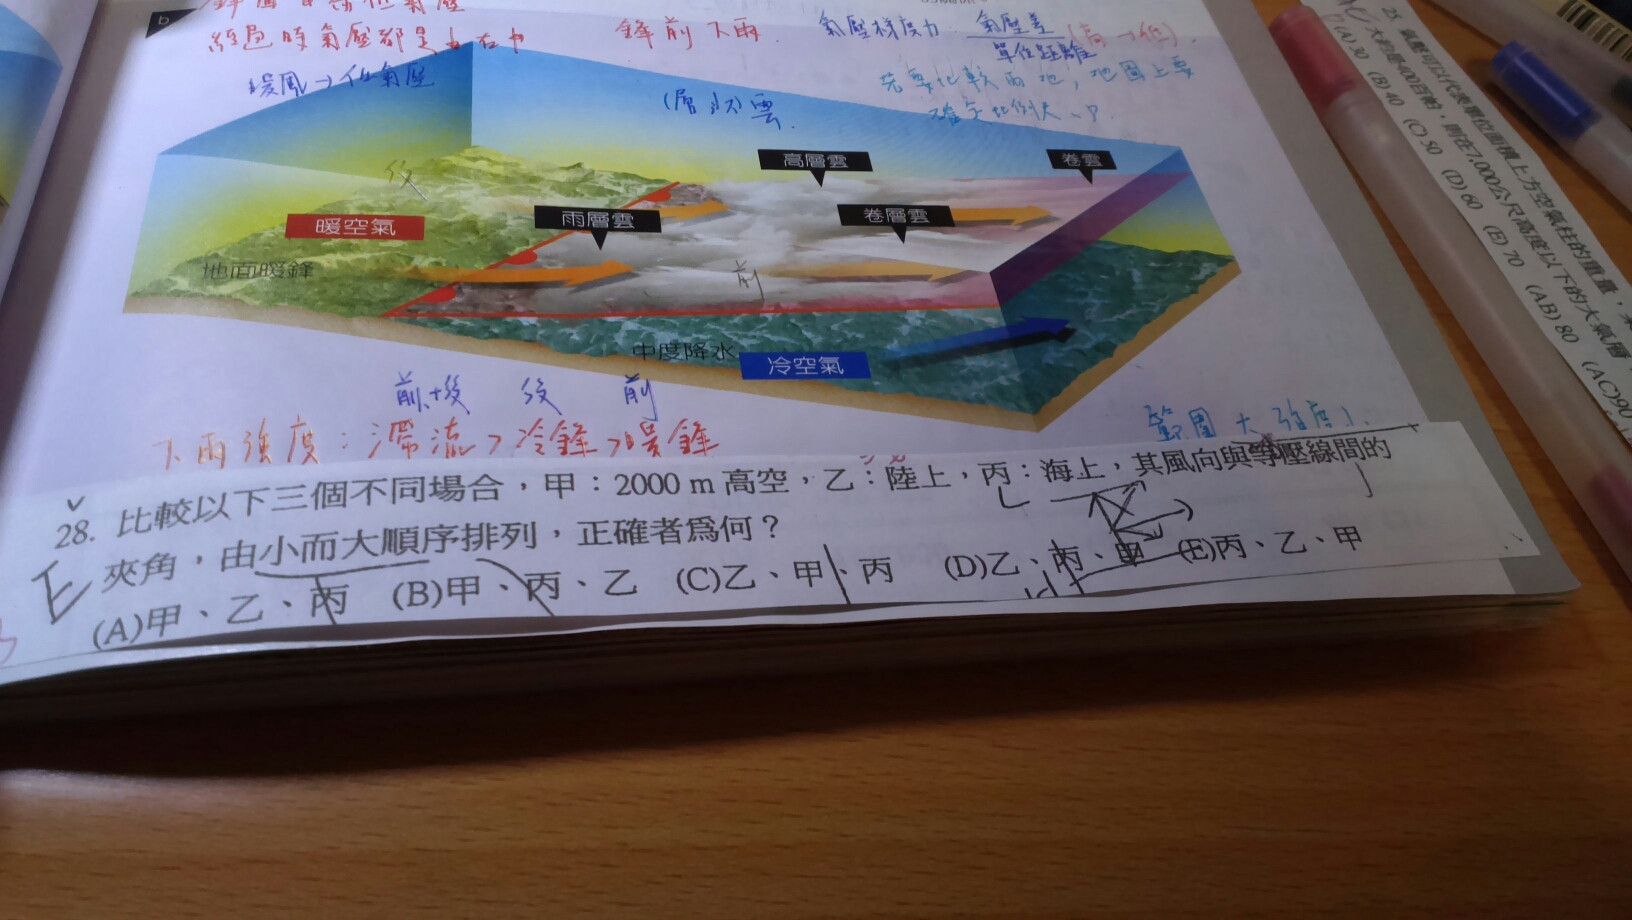 b
經過時氣壓都是由右中
鋒前下雨
氣壓梯度力 氣壓差 (高→低)
單位距離
暖風→低氣壓
(層狀)雲
先要比較兩地,地圖上要
確定比例大、
高層雲
卷雲
後
暖空氣
雨層雲
卷層雲
地面暖鋒
前
中度降水
冷空氣
前+後 後 前
下雨強度:滯流>冷鋒>暖鋒
範圍大 強度
28. 比較以下三個不同場合,甲:2000 m 高空,乙:陸上,丙:海上,其風向與等壓線間的
夾角,由小而大順序排列,正確者為何?
E
(A)甲、乙、丙 (B)甲、丙、乙 (C)乙、甲、丙 (D)乙、丙、甲 (E)丙、乙、甲
25. 氣壓可以代表單位面積上方空氣柱的重量,
大約是400百帕,則在7,000公尺高度以下的大氣層
(A) 30 (B) 40 (C) 50 (D) 60 (E) 70 (AB) 80 (AC)90